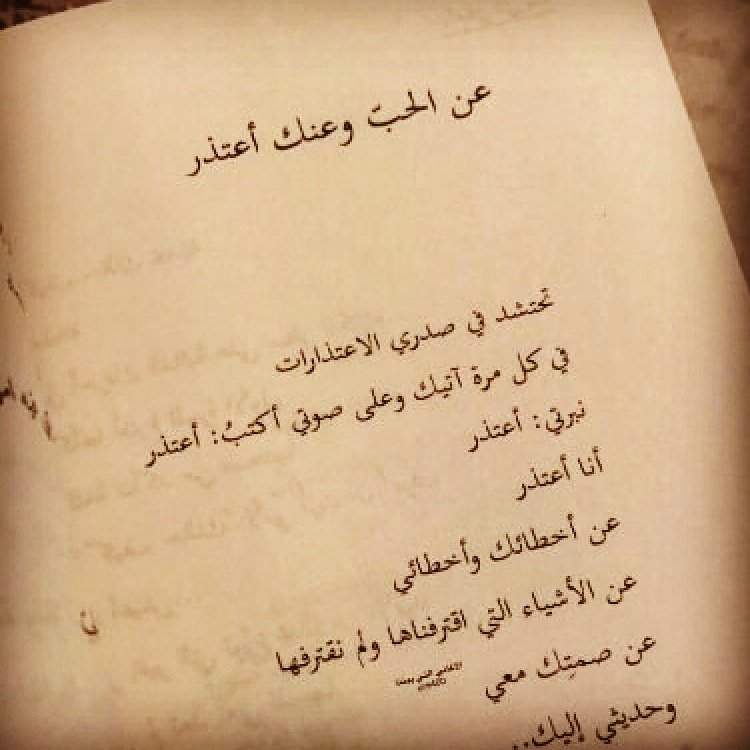 عن الحبّ وعنك أعتذر
تحتشد في صدري الاعتذارات
في كل مرة آتيك وعلى صوتي أكتبُ: أعتذر
نبرتي: أعتذر
أنا أعتذر
عن أخطائك وأخطائي
عن الأشياء التي اقترفناها ولم نقترفها
عن صمتِك معي
وحديثي إليك..